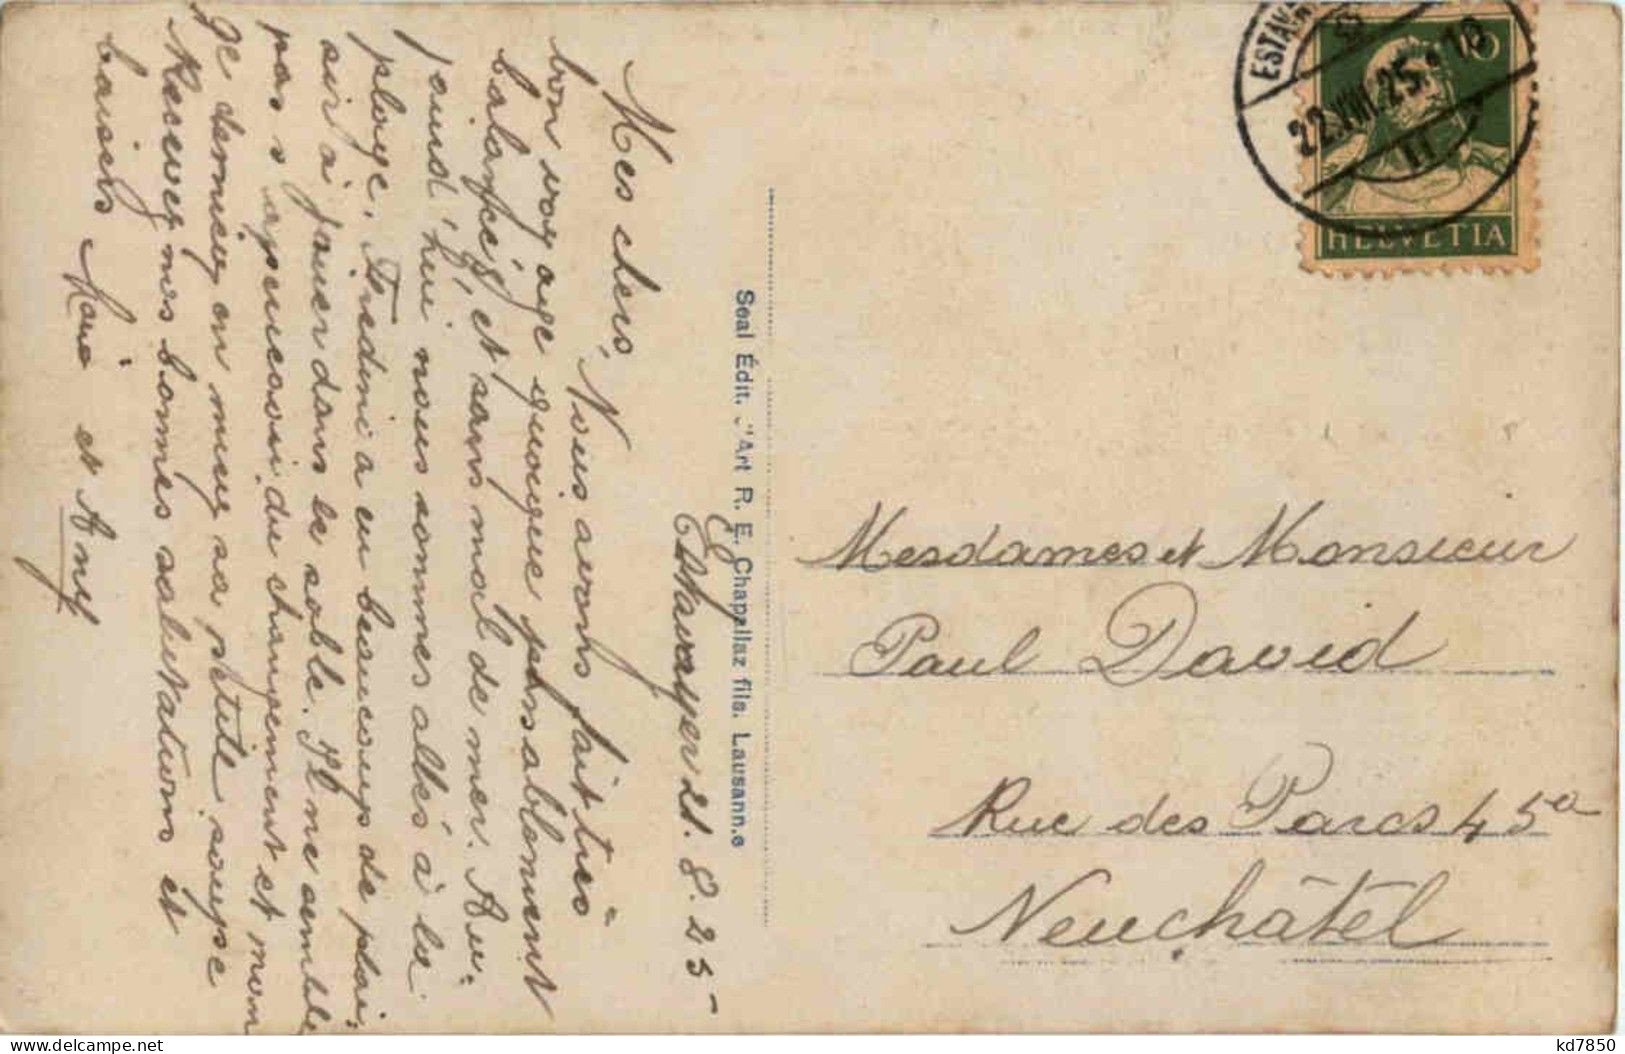 Estavayer 21. 8. 25
Mes chers,
Nous avons fait très
bon voyage quoique passablement
balancés, et sans mal de mer. Au-
jourd'hui nous sommes allés à la
plage, Fredini a eu beaucoup de plai-
sir à jouer dans le sable. Il ne semble
pas s'apercevoir du changement et mon
de sa petite soupe
Recevez nos bonnes salutations et
baisers Marie et Amy
Seal Édit. d'Art R. E. Chapallaz fils. Lausanne
ESTAV
22.VIII.25. 10
10
HELVETIA
Mesdames et Monsieur
Paul David
Rue des Parcs 45a
Neuchâtel
kd7850